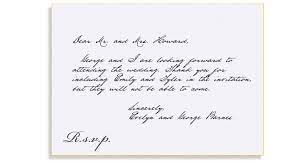 Dear Mr. and Mrs. Howard,
George and I are looking forward to
attending the wedding. Thank you for
including Emily and Tyler in the invitation,
but they will not be able to attend.
Sincerely,
Evelyn and George Barnes
R.s.v.p.